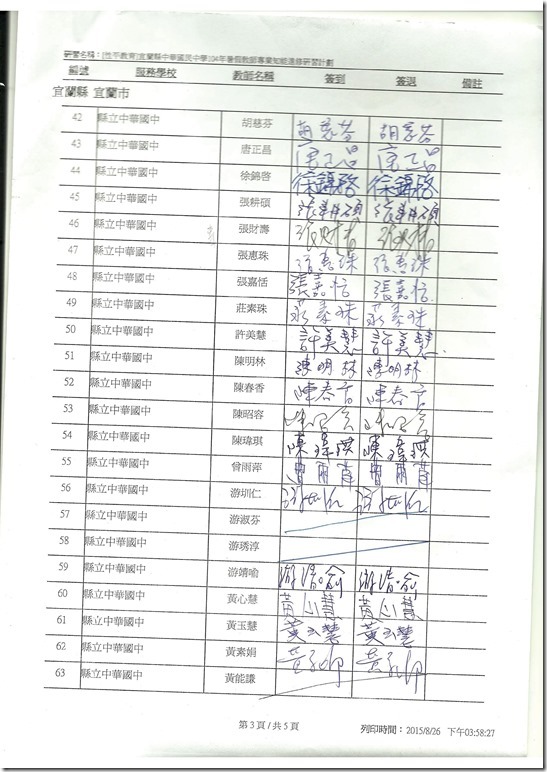 研習名稱：[性平教育]宜蘭縣中華國民中學104年暑假教師專業知能進修研習計劃
編號 服務學校 教師名稱 簽到 簽退 備註
宜蘭縣 宜蘭市
42 縣立中華國中 胡慈芬 胡慈芬 胡慈芬
43 縣立中華國中 唐正昌 唐正昌 唐正昌
44 縣立中華國中 徐錦啓 徐錦啓 徐錦啓
45 縣立中華國中 張耕碩 張耕碩 張耕碩
46 縣立中華國中 張財壽 張財壽 張財壽
47 縣立中華國中 張惠珠 張惠珠 張惠珠
48 縣立中華國中 張嘉恬 張嘉恬 張嘉恬
49 縣立中華國中 莊素珠 莊素珠 莊素珠
50 縣立中華國中 許美慧 許美慧 許美慧
51 縣立中華國中 陳明林 陳明林 陳明林
52 縣立中華國中 陳春香 陳春香 陳春香
53 縣立中華國中 陳昭容 陳昭容 陳昭容
54 縣立中華國中 陳瑋琪 陳瑋琪 陳瑋琪
55 縣立中華國中 曾雨萍 曾雨萍 曾雨萍
56 縣立中華國中 游圳仁 游圳仁 游圳仁
57 縣立中華國中 游淑芬
58 縣立中華國中 游琇淳
59 縣立中華國中 游靖喻 游靖喻 游靖喻
60 縣立中華國中 黃心慧 黃心慧 黃心慧
61 縣立中華國中 黃玉慧 黃玉慧 黃玉慧
62 縣立中華國中 黃素娟
63 縣立中華國中 黃能謙
第 3 頁 / 共 5 頁 列印時間：2015/8/26 下午03:58:27